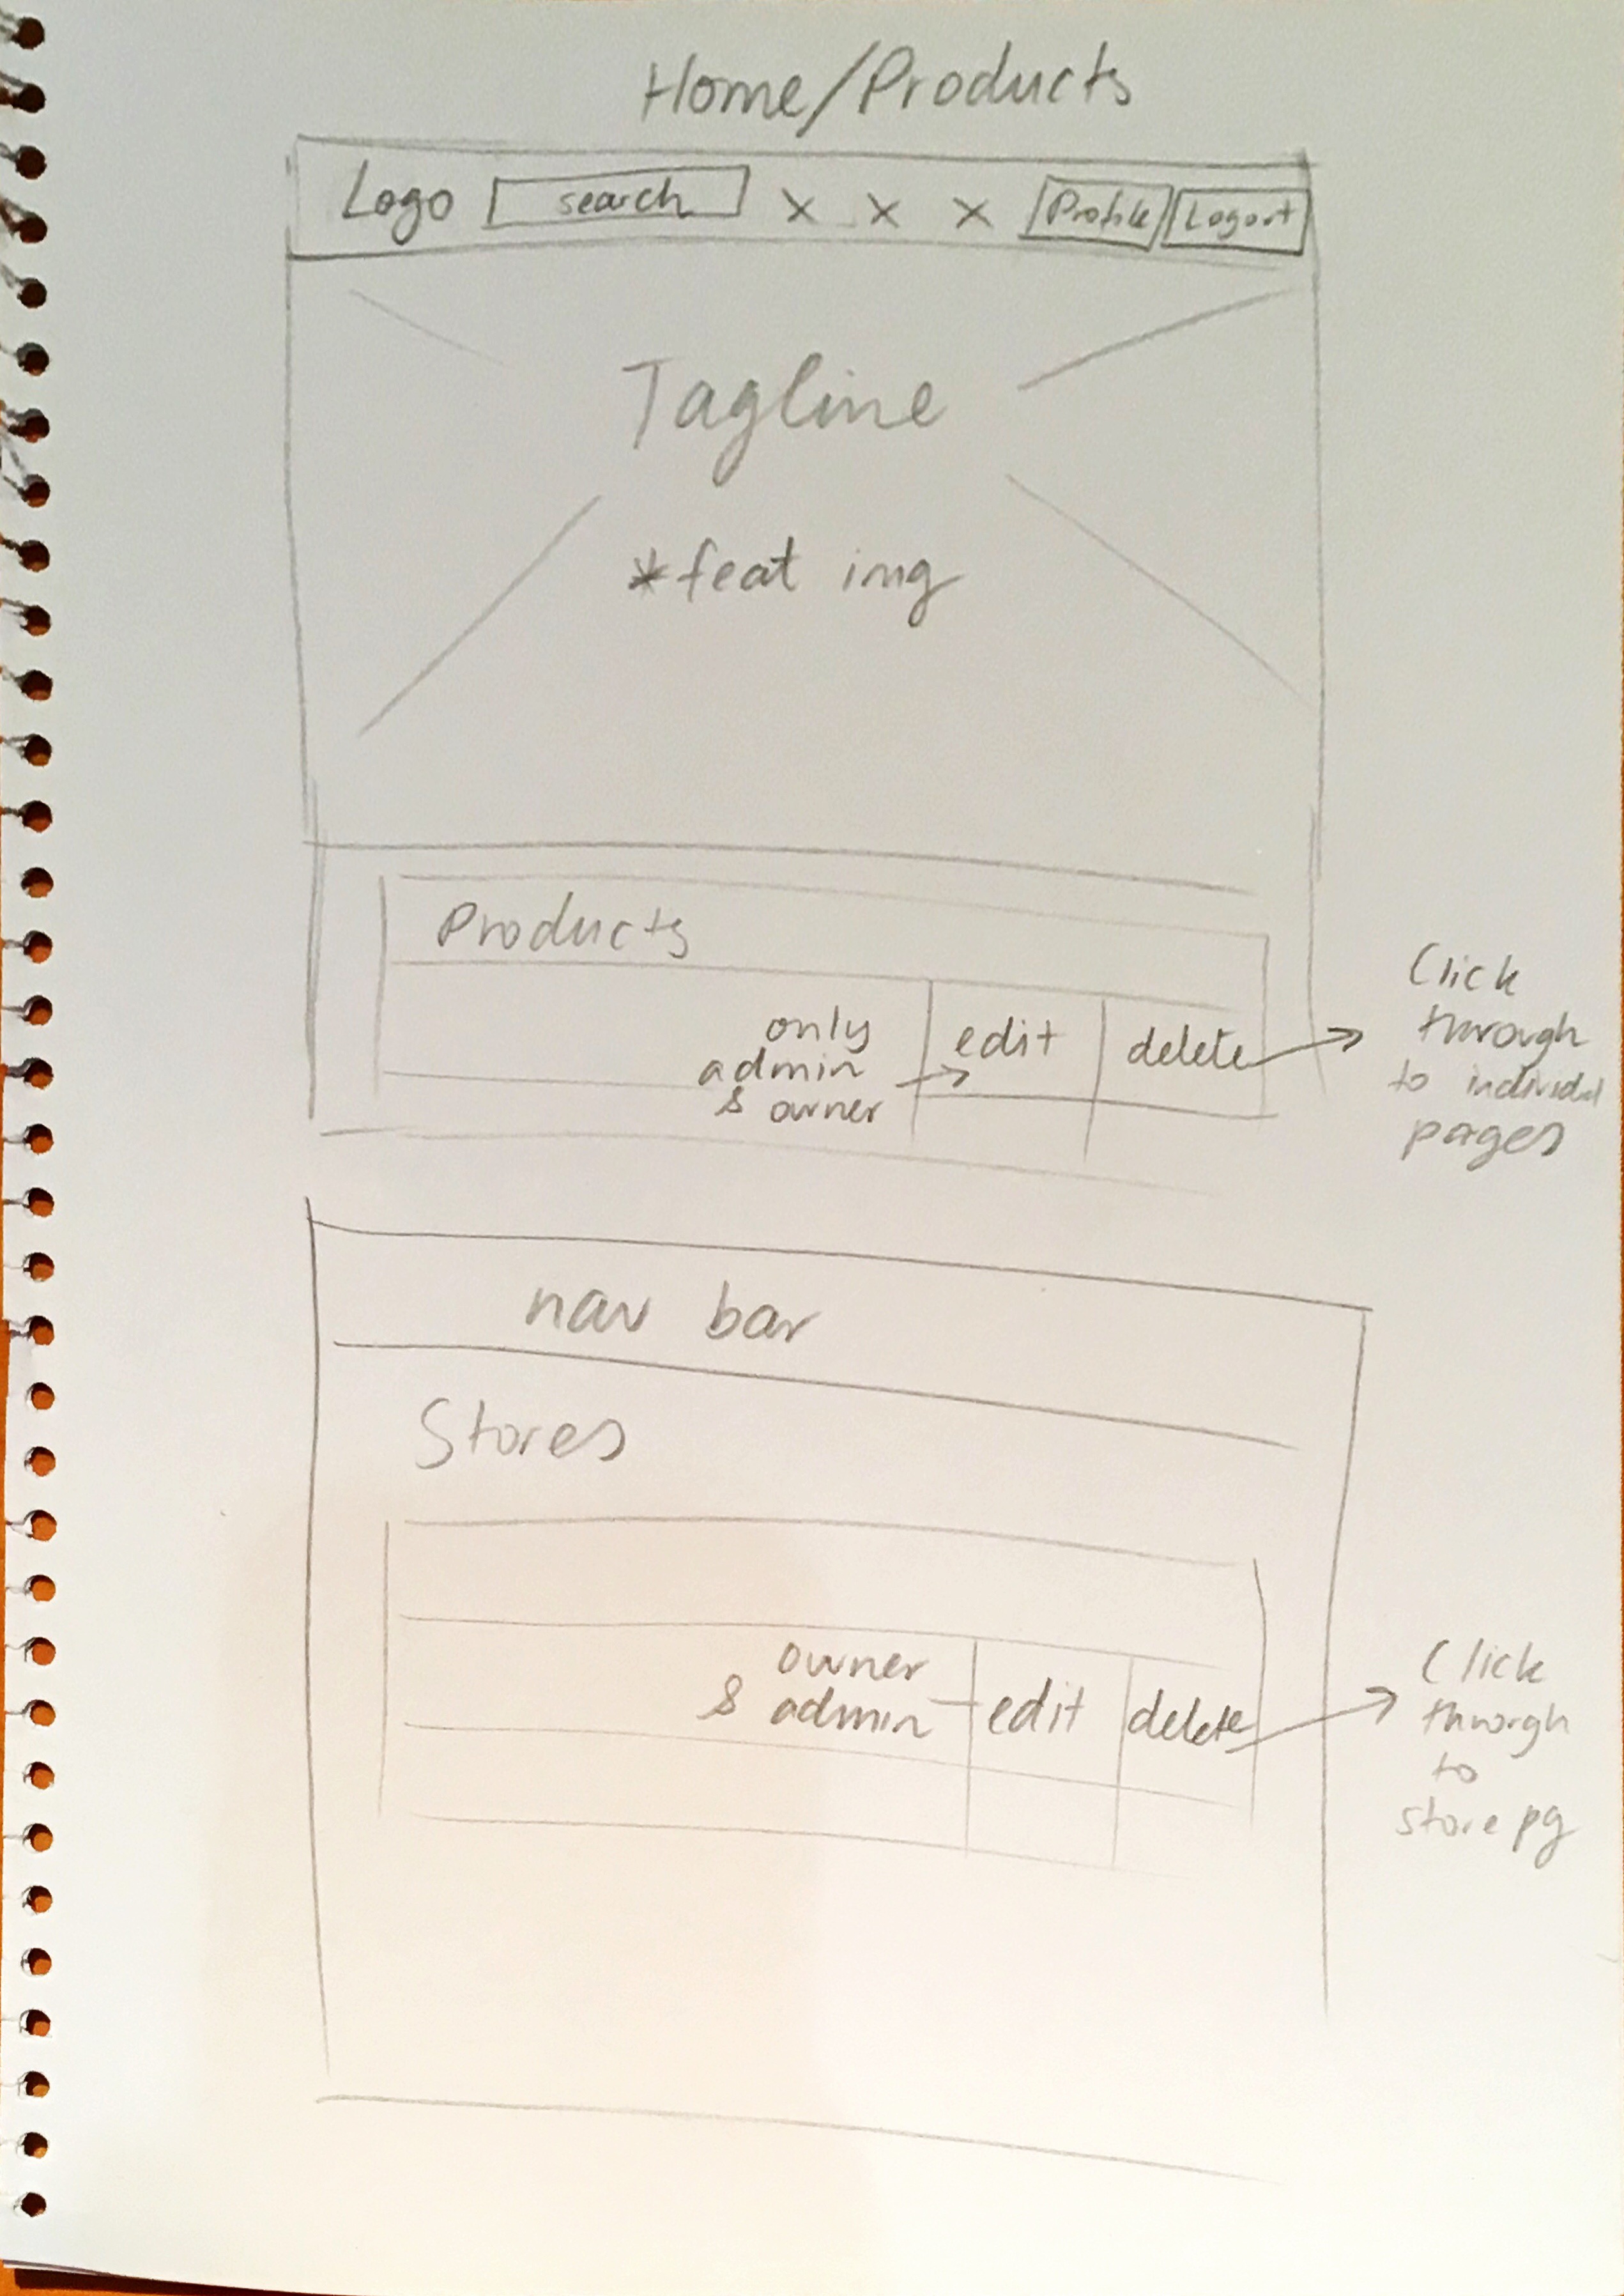 Home/Products
Logo search x x x Profile Logout
Tagline
*feat img
Products
only
admin
& owner
edit delete
Click
through
to individal
pages
nav bar
Stores
owner
& admin
edit delete
Click
through
to
store pg